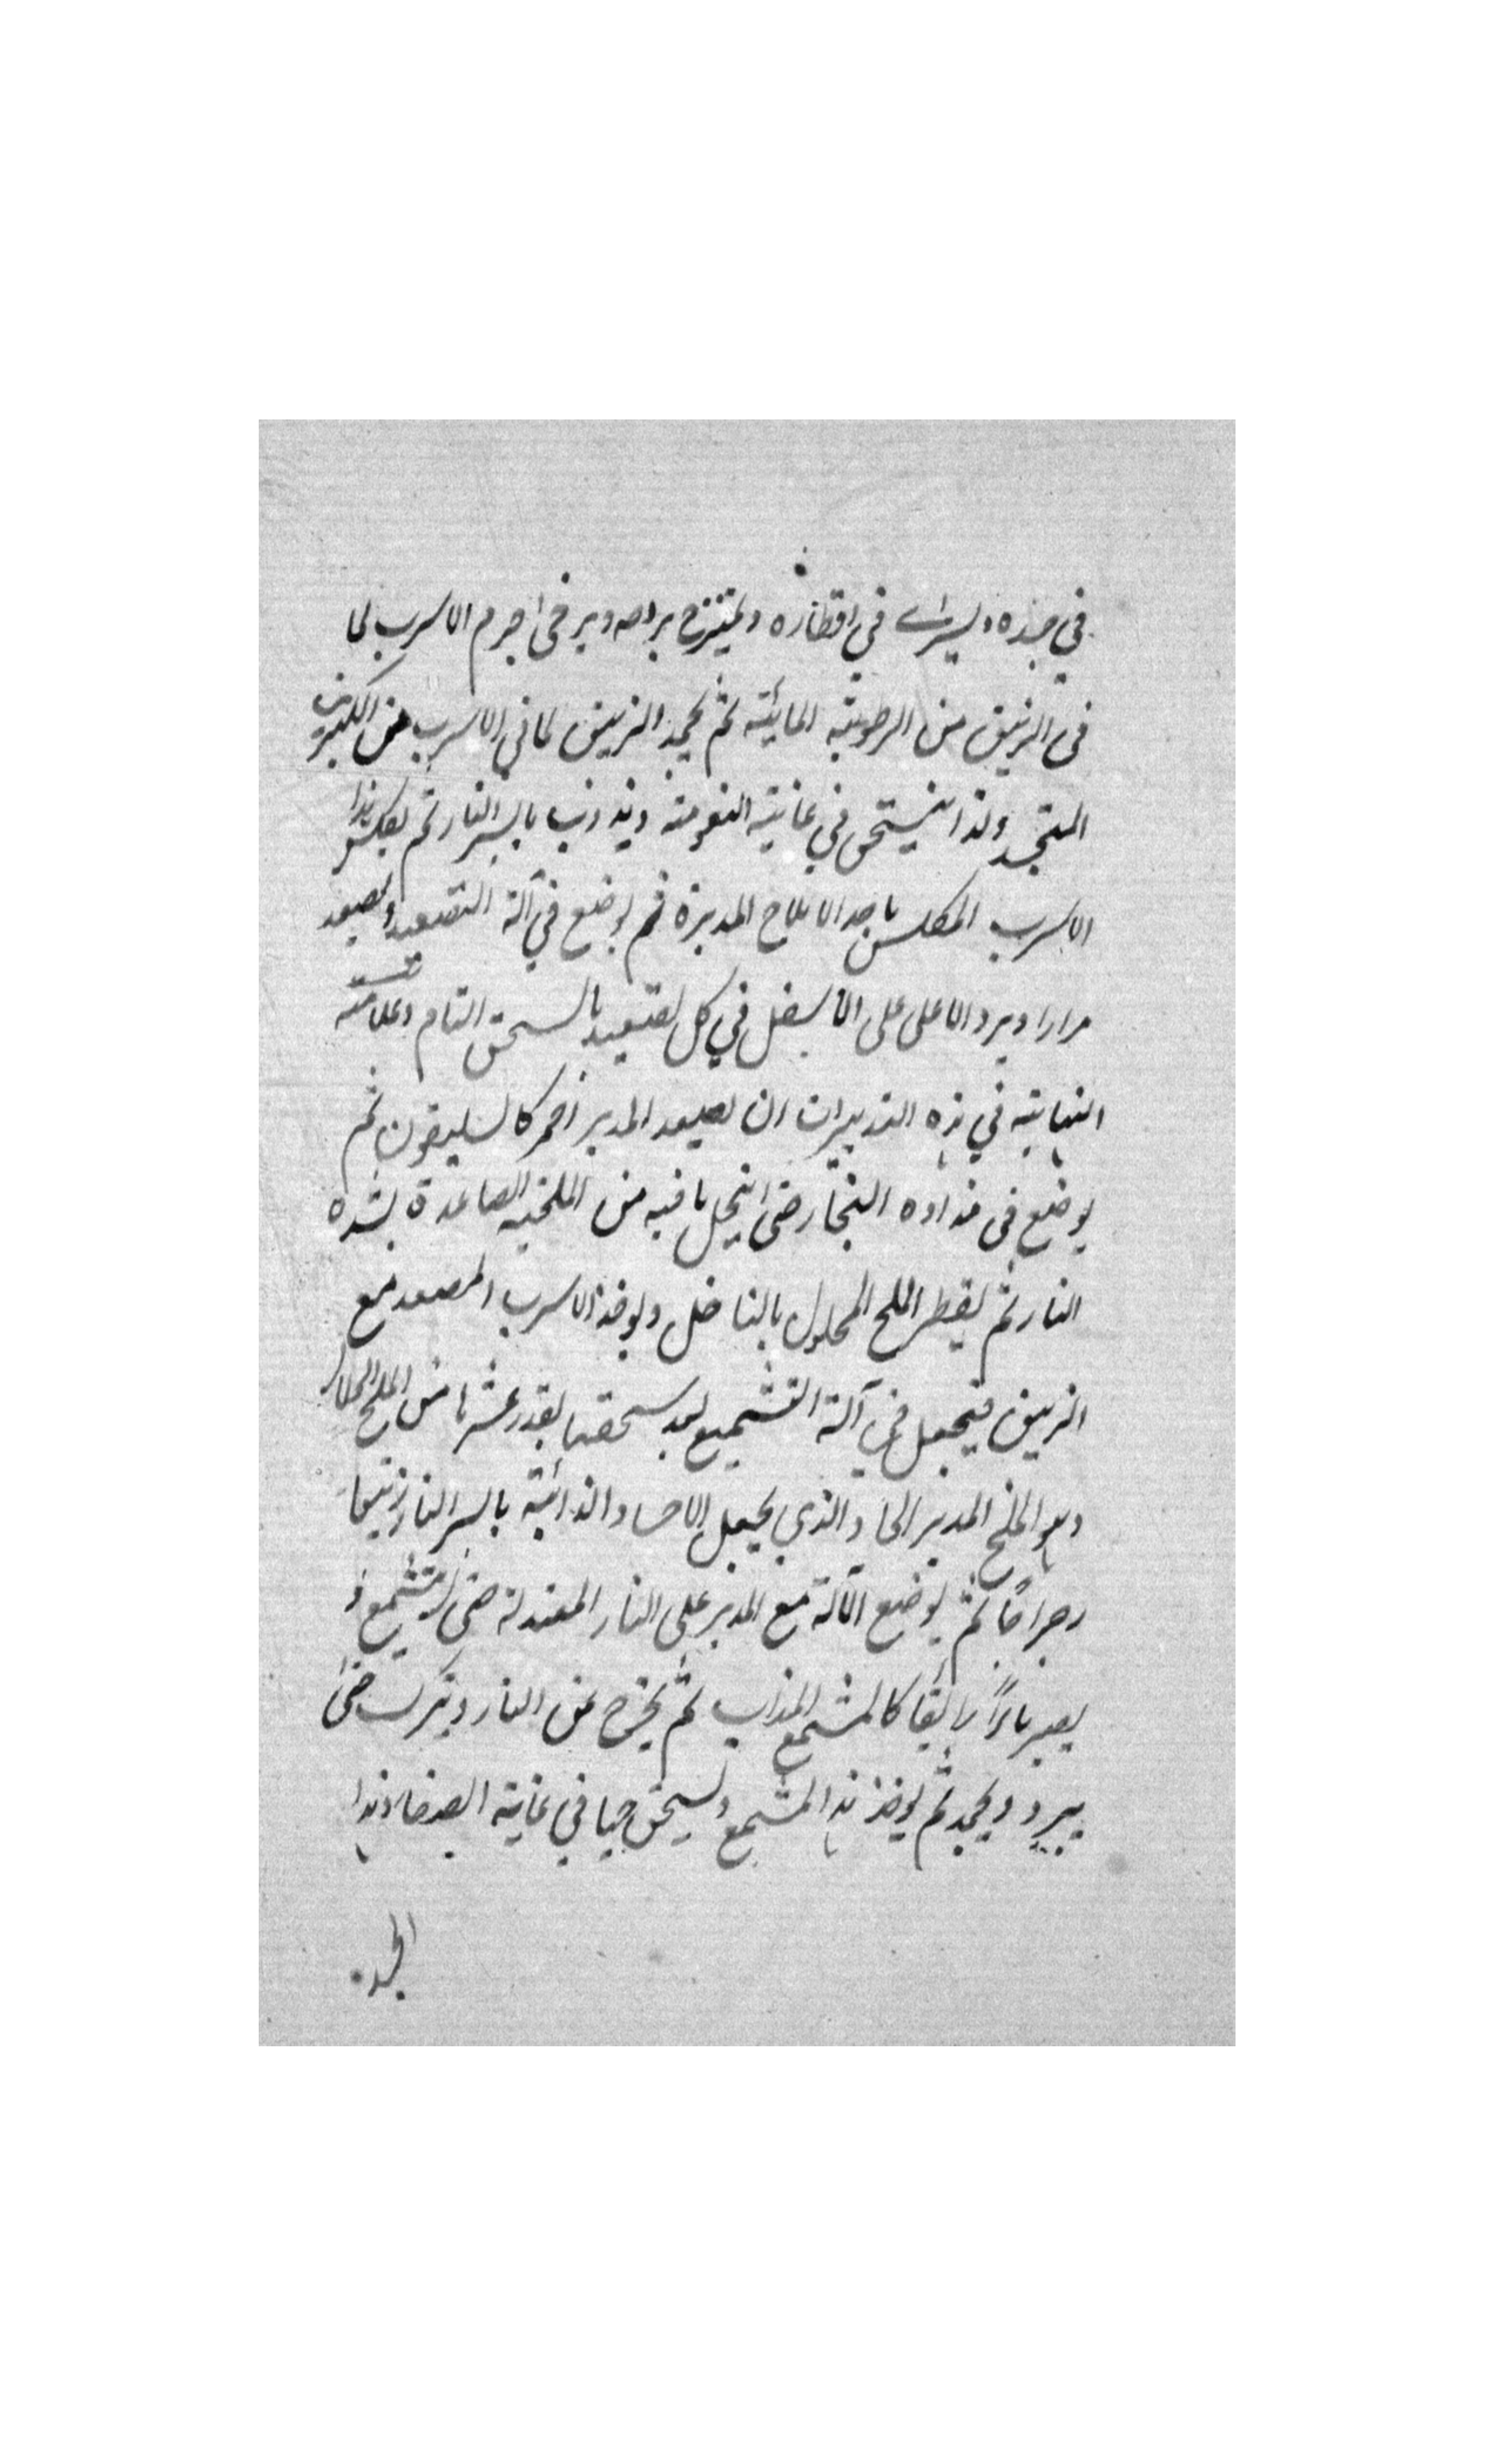 في جسده ويسرى في اقطاره ويمتزج بروحه ويرخى جرم الاسرب لما
في الزيبق من الرطوبة المائية ثم يجمد الزيبق لما في الاسرب من الكبريت
المتجسد ولذا ينسحق في غاية النعومة ويذوب بايسر النار ثم يعكس هذا
الاسرب المكلس باحد الاملاح المدبرة ثم يوضع في آلة التصعيد ويصعد
مرارا ويرد الاعلى على الاسفل في كل تصعيد بالسحق التام وعلامته
النهاية في هذه التدبيرات ان يصعد المدبر احمر كالسليقون ثم
يوضع في نداوه البخار حتى ينحل ما فيه من الملحية الصاعدة بشدة
النار ثم يقطر الملح المحلول بالناضل ويوخذ الاسرب المصعد مع
الزيبق فيجعل في آلة التشميع بعد سحقها بقدر عشرها من الملح الحلال
وهو الملح المدبر الحاد الذي يجعل الاجساد الذائبة بايسر النار زيبقا
رجراجا ثم يوضع الآلة مع المدبر على النار المعتدلة حتى يتشمع و
يصير مائرا رائقا كالشمع المذاب ثم يخرج عن النار ويترك حتى
يبرد ويجمد ثم يوخذ هذا المشمع ويسحق حيا في غاية الصفا وهذا
الجسد